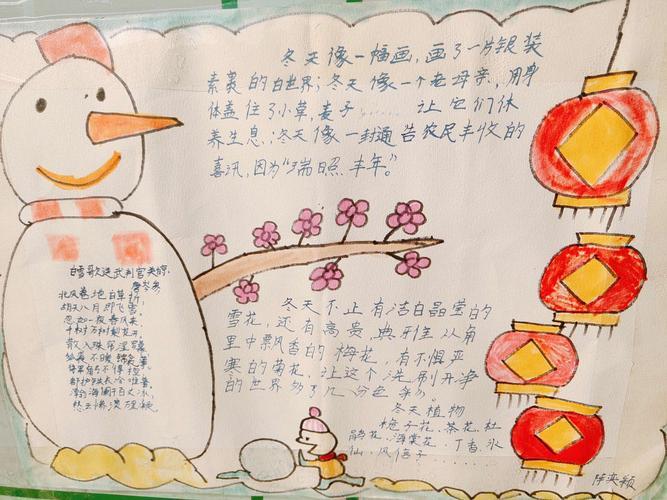 冬天像一幅画,画了一片银装
素裹的白世界;冬天像一个老母亲,用身
体盖住了小草,麦子……让它们休
养生息;冬天像一封通告农民丰收的
喜讯,因为“瑞照丰年。”
白雪歌送武判官
北风卷地白草折,
胡天八月即飞雪。
忽如一夜春风来,
千树万树梨花开
散入珠帘湿
不暖
将军角弓不得控
都护铁衣冷难着
瀚海阑干百丈冰,
愁云惨淡万里凝
冬天不止有洁白晶莹的
雪花,还有高贵,典雅从角
里中飘香的梅花,有不惧严
寒的菊花,让这个洗刷干净
的世界多了几分色彩。
冬天植物
栀子花、茶花、杜
鹃花、海棠花、丁香、水
仙、风信子……